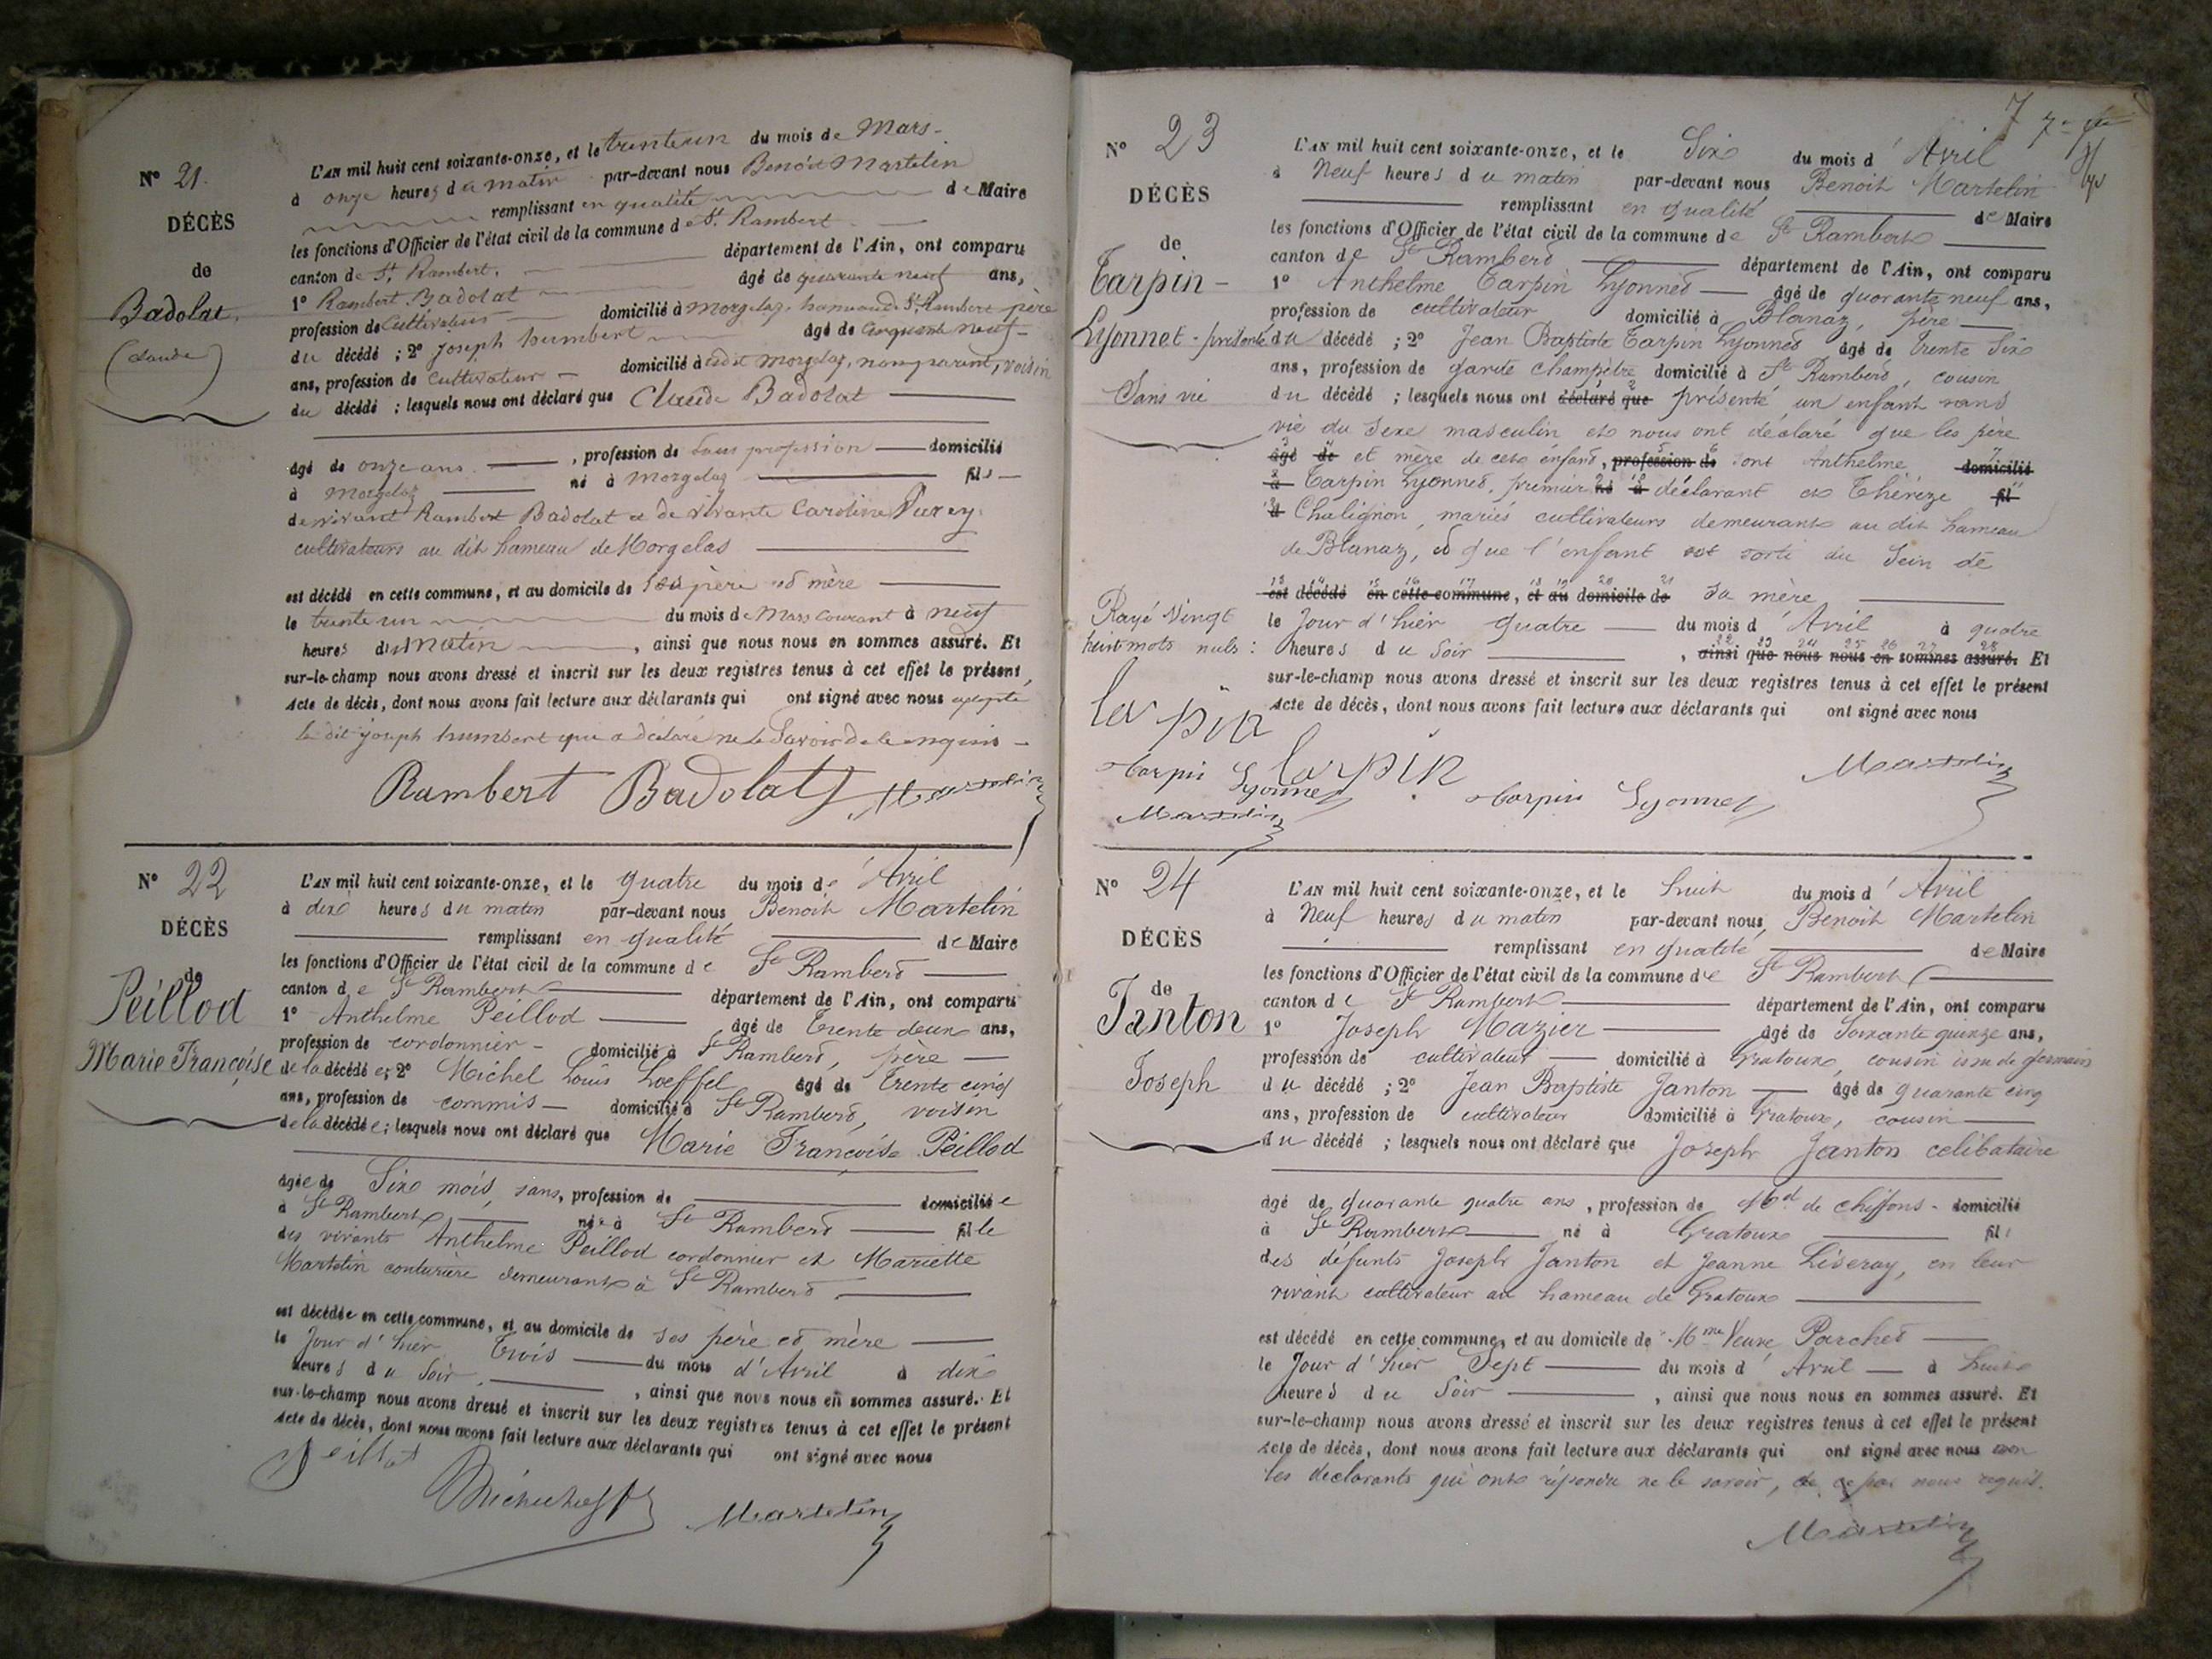 N° 21.
DÉCÈS
de
Badolat,
(Claude)
L'AN mil huit cent soixante-onze, et le trente un du mois de Mars
à onze heures du matin par-devant nous Benoit Martelin
remplissant en qualité de Maire
les fonctions d'Officier de l'état civil de la commune de St. Rambert
canton de St. Rambert. département de l'Ain, ont comparu
1° Rambert Badolat âgé de quarante neuf ans,
profession de Cultivateur domicilié à Morgelaz, hameau de St. Rambert père
du décédé ; 2° Joseph humbert âgé de cinquante neuf
ans, profession de Cultivateur domicilié à dit Morgelaz, non parent, voisin
du décédé ; lesquels nous ont déclaré que Claude Badolat
âgé de onze ans , profession de Sans profession domicilié
à Morgelaz né à Morgelaz fils
de vivant Rambert Badolat et de vivante Caroline
cultivateurs au dit hameau de Morgelas
est décédé en cette commune, et au domicile de ses père et mère
le trente un du mois de Mars courant à neuf
heures du Matin , ainsi que nous nous en sommes assuré. Et
sur-le-champ nous avons dressé et inscrit sur les deux registres tenus à cet effet le présent
Acte de décès, dont nous avons fait lecture aux déclarants qui ont signé avec nous excepté
le dit joseph humbert qui a déclaré ne le Savoir de ce enquis
Rambert Badolat Martelin
N° 22
DÉCÈS
de
Peillod
Marie Françoise
L'AN mil huit cent soixante-onze, et le quatre du mois d' Avril
à dix heures du matin par-devant nous Benoit Martelin
remplissant en qualité de Maire
les fonctions d'Officier de l'état civil de la commune de St Rambert
canton de St Rambert département de l'Ain, ont comparu
1° Anthelme Peillod âgé de Trente deux ans,
profession de cordonnier domicilié à St Rambert, père
de la décédée ; 2° Michel Louis Loeffel âgé de Trente cinq
ans, profession de commis domicilié à St Rambert, voisin
de la décédée ; lesquels nous ont déclaré que Marie Françoise Peillod
âgée de Six mois, sans, profession de domiciliée
à St Rambert née à St Rambert fille
des vivants Anthelme Peillod cordonnier et Mariette
Martelin couturière demeurants à St Rambert
est décédée en cette commune, et au domicile de ses père et mère
le Jour d'hier Trois du mois d'Avril à dix
heures du Soir , ainsi que nous nous en sommes assuré. Et
sur-le-champ nous avons dressé et inscrit sur les deux registres tenus à cet effet le présent
Acte de décès, dont nous avons fait lecture aux déclarants qui ont signé avec nous
Peillod
Martelin
7
N° 23
DÉCÈS
de
Tarpin-
Lyonnet - présenté
Sans vie
L'AN mil huit cent soixante-onze, et le Six du mois d' Avril
à Neuf heures du matin par-devant nous Benoit Martelin
remplissant en qualité de Maire
les fonctions d'Officier de l'état civil de la commune de St Rambert
canton de St Rambert département de l'Ain, ont comparu
1° Anthelme Tarpin Lyonnet âgé de quarante neuf ans,
profession de cultivateur domicilié à Blanaz, père
du décédé ; 2° Jean Baptiste Tarpin Lyonnet âgé de trente Six
ans, profession de garde champêtre domicilié à St Rambert, cousin
du décédé ; lesquels nous ont déclaré que présenté un enfant sans
vie du Sexe masculin et nous ont déclaré que les père
âgé de et mère de cet enfant, profession de sont Anthelme domicilié
à Tarpin Lyonnet, premier né à déclarant et Thérèze fil
d Chalignon, mariés cultivateurs demeurants au dit hameau
de Blanaz, et que l'enfant est sorti du Sein de
est décédé en cette commune, et au domicile de sa mère
le Jour d'hier quatre du mois d' Avril à quatre
heures du Soir , ainsi que nous nous en sommes assuré. Et
sur-le-champ nous avons dressé et inscrit sur les deux registres tenus à cet effet le présent
Acte de décès, dont nous avons fait lecture aux déclarants qui ont signé avec nous
Rayé Vingt
huit mots nuls :
tarpin
tarpin Lyonnet tarpin
Martelin
tarpin Lyonnet Martelin
N° 24
DÉCÈS
de
Janton
Joseph
L'AN mil huit cent soixante-onze, et le huit du mois d' Avril
à Neuf heures du matin par-devant nous Benoit Martelin
remplissant en qualité de Maire
les fonctions d'Officier de l'état civil de la commune de St Rambert
canton de St Rambert département de l'Ain, ont comparu
1° Joseph Mazier âgé de Soixante quinze ans,
profession de cultivateur domicilié à Gratoux, cousin issu de germain
du décédé ; 2° Jean Baptiste Janton âgé de quarante cinq
ans, profession de cultivateur domicilié à Gratoux, cousin
du décédé ; lesquels nous ont déclaré que Joseph Janton celibataire
âgé de quarante quatre ans , profession de Md de chiffons - domicilié
à St Rambert né à Gratoux fils
des défunts Joseph Janton et Jeanne Liseray, en leur
vivant cultivateur au hameau de Gratoux
est décédé en cette commune, et au domicile de Mme Veuve Parchet
le Jour d'hier Sept du mois d' Avril à huit
heures du Soir , ainsi que nous nous en sommes assuré. Et
sur-le-champ nous avons dressé et inscrit sur les deux registres tenus à cet effet le présent
Acte de décès, dont nous avons fait lecture aux déclarants qui ont signé avec nous non
les déclarants qui ont répondu ne le savoir, de ce par nous requis.
Martelin